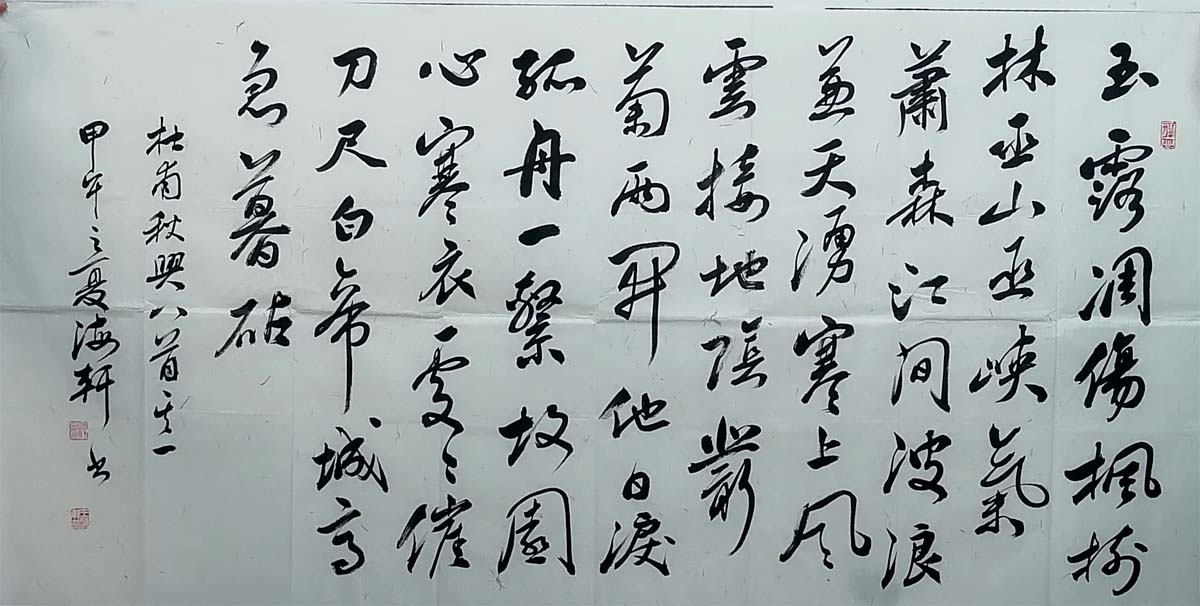 玉露凋傷楓樹
林巫山巫峽氣
蕭森江间波浪
兼天湧寒上风
雲接地陰叢
菊两開他日淚
孤舟一繫故園
心寒衣處〻催
刀尺白帝城高
急暮砧
杜甫秋興八首其一
甲午之夏海軒书